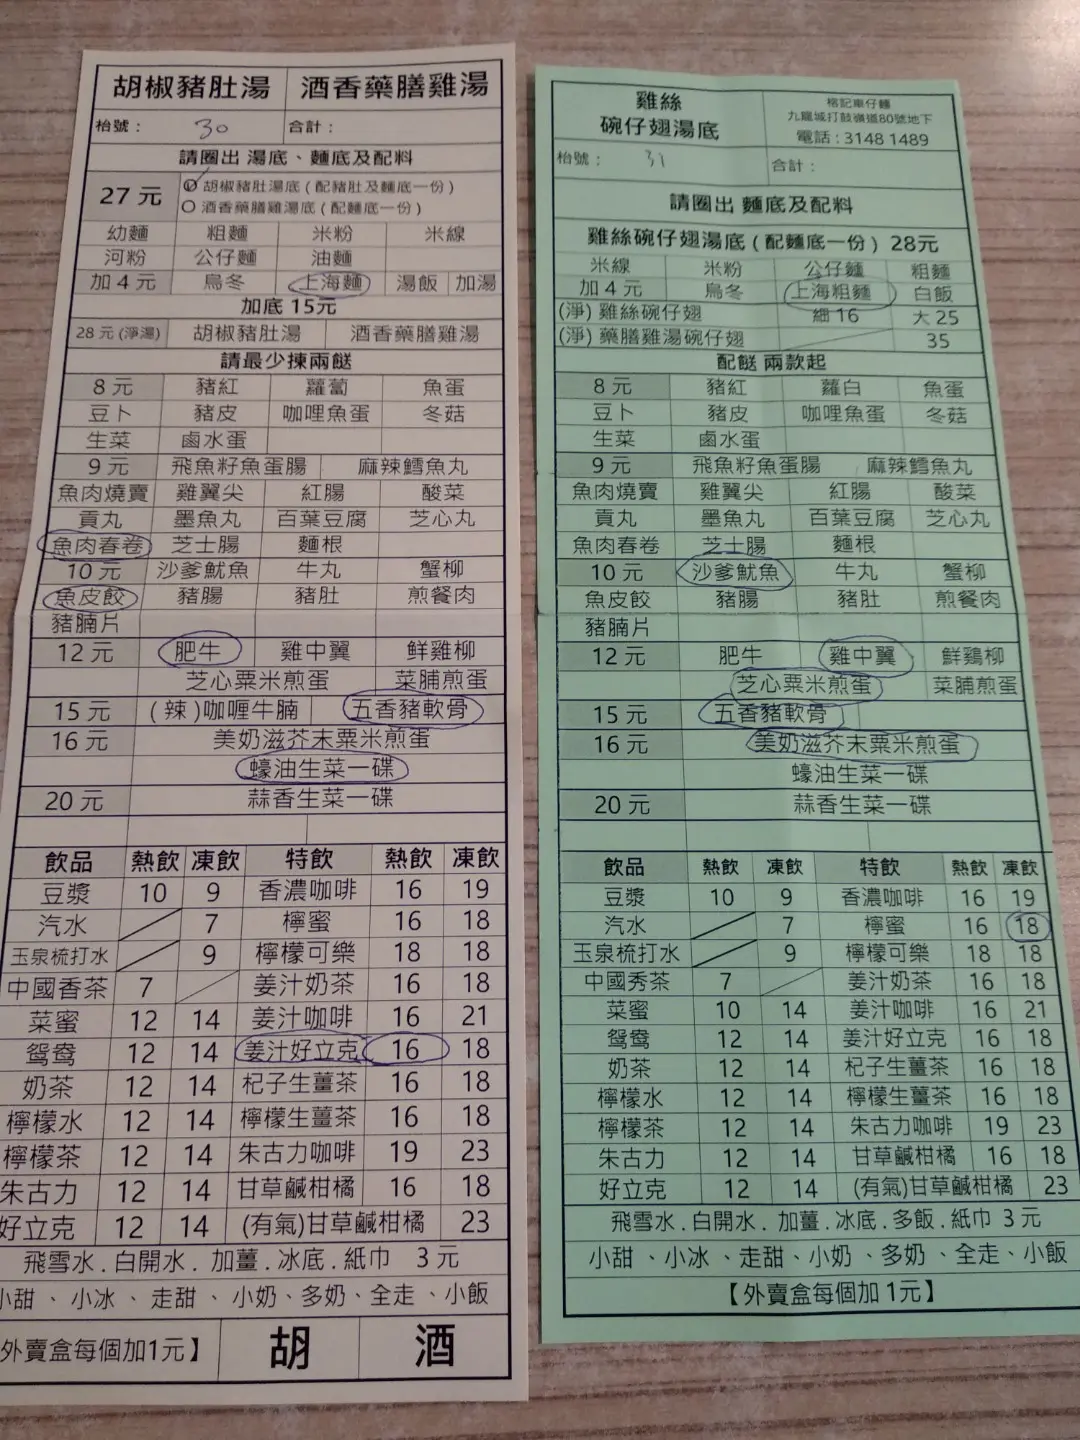 胡椒豬肚湯 酒香藥膳雞湯
枱號： 30 合計：
請圈出 湯底、麵底及配料
27 元 胡椒豬肚湯底 ( 配豬肚及麵底一份 )
酒香藥膳雞湯底 ( 配麵底一份 )
幼麵 粗麵 米粉 米線
河粉 公仔麵 油麵
加 4 元 烏冬 上海麵 湯飯 加湯
加底 15元
28 元 (淨湯) 胡椒豬肚湯 酒香藥膳雞湯
請最少揀兩餸
8 元 豬紅 蘿蔔 魚蛋
豆卜 豬皮 咖哩魚蛋 冬菇
生菜 鹵水蛋
9 元 飛魚籽魚蛋腸 麻辣鱈魚丸
魚肉燒賣 雞翼尖 紅腸 酸菜
貢丸 墨魚丸 百葉豆腐 芝心丸
魚肉春卷 芝士腸 麵根
10 元 沙爹魷魚 牛丸 蟹柳
魚皮餃 豬腸 豬肚 煎餐肉
豬腩片
12 元 肥牛 雞中翼 鮮雞柳
芝心粟米煎蛋 菜脯煎蛋
15 元 ( 辣 )咖喱牛腩 五香豬軟骨
16 元 美奶滋芥末粟米煎蛋
蠔油生菜一碟
20 元 蒜香生菜一碟
飲品 熱飲 凍飲 特飲 熱飲 凍飲
豆漿 10 9 香濃咖啡 16 19
汽水 7 檸蜜 16 18
玉泉梳打水 9 檸檬可樂 18 18
中國香茶 7 姜汁奶茶 16 18
菜蜜 12 14 姜汁咖啡 16 21
鴛鴦 12 14 姜汁好立克 16 18
奶茶 12 14 杞子生薑茶 16 18
檸檬水 12 14 檸檬生薑茶 16 18
檸檬茶 12 14 朱古力咖啡 19 23
朱古力 12 14 甘草鹹柑橘 16 18
好立克 12 14 (有氣)甘草鹹柑橘 23
飛雪水 . 白開水 . 加薑 . 冰底 . 紙巾 3 元
小甜 、小冰 、走甜 、小奶、多奶、全走 、小飯
外賣盒每個加1元】 胡 酒
雞絲
碗仔翅湯底
榕記車仔麵
九龍城打鼓嶺道80號地下
電話 : 3148 1489
枱號： 31 合計：
請圈出 麵底及配料
雞絲碗仔翅湯底 ( 配麵底一份 ) 28元
米線 米粉 公仔麵 粗麵
加 4 元 烏冬 上海粗麵 白飯
(淨) 雞絲碗仔翅 細 16 大 25
(淨) 藥膳雞湯碗仔翅 35
配餸 兩款起
8 元 豬紅 蘿白 魚蛋
豆卜 豬皮 咖哩魚蛋 冬菇
生菜 鹵水蛋
9 元 飛魚籽魚蛋腸 麻辣鱈魚丸
魚肉燒賣 雞翼尖 紅腸 酸菜
貢丸 墨魚丸 百葉豆腐 芝心丸
魚肉春卷 芝士腸 麵根
10 元 沙爹魷魚 牛丸 蟹柳
魚皮餃 豬腸 豬肚 煎餐肉
豬腩片
12 元 肥牛 雞中翼 鮮鷄柳
芝心粟米煎蛋 菜脯煎蛋
15 元 五香豬軟骨
16 元 美奶滋芥末粟米煎蛋
蠔油生菜一碟
20 元 蒜香生菜一碟
飲品 熱飲 凍飲 特飲 熱飲 凍飲
豆漿 10 9 香濃咖啡 16 19
汽水 7 檸蜜 16 18
玉泉梳打水 9 檸檬可樂 18 18
中國秀茶 7 姜汁奶茶 16 18
菜蜜 10 14 姜汁咖啡 16 21
鴛鴦 12 14 姜汁好立克 16 18
奶茶 12 14 杞子生薑茶 16 18
檸檬水 12 14 檸檬生薑茶 16 18
檸檬茶 12 14 朱古力咖啡 19 23
朱古力 12 14 甘草鹹柑橘 16 18
好立克 12 14 (有氣)甘草鹹柑橘 23
飛雪水 . 白開水 . 加薑 . 冰底 . 多飯 . 紙巾 3 元
小甜 、小冰 、走甜、小奶 、多奶 、全走、小飯
【外賣盒每個加 1元】